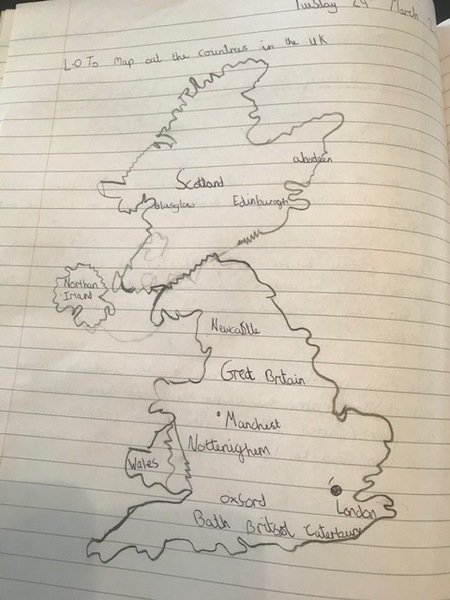 Tuesday 24 March
L.O To map out the countries in the UK
aberdeen
Scotland
Glasglow Edinburogh
Northan
Irland
Newcastle
Great Britain
Manchest
Nottenighem
Wales
oxsord
London
Bath Britsol Caterbury